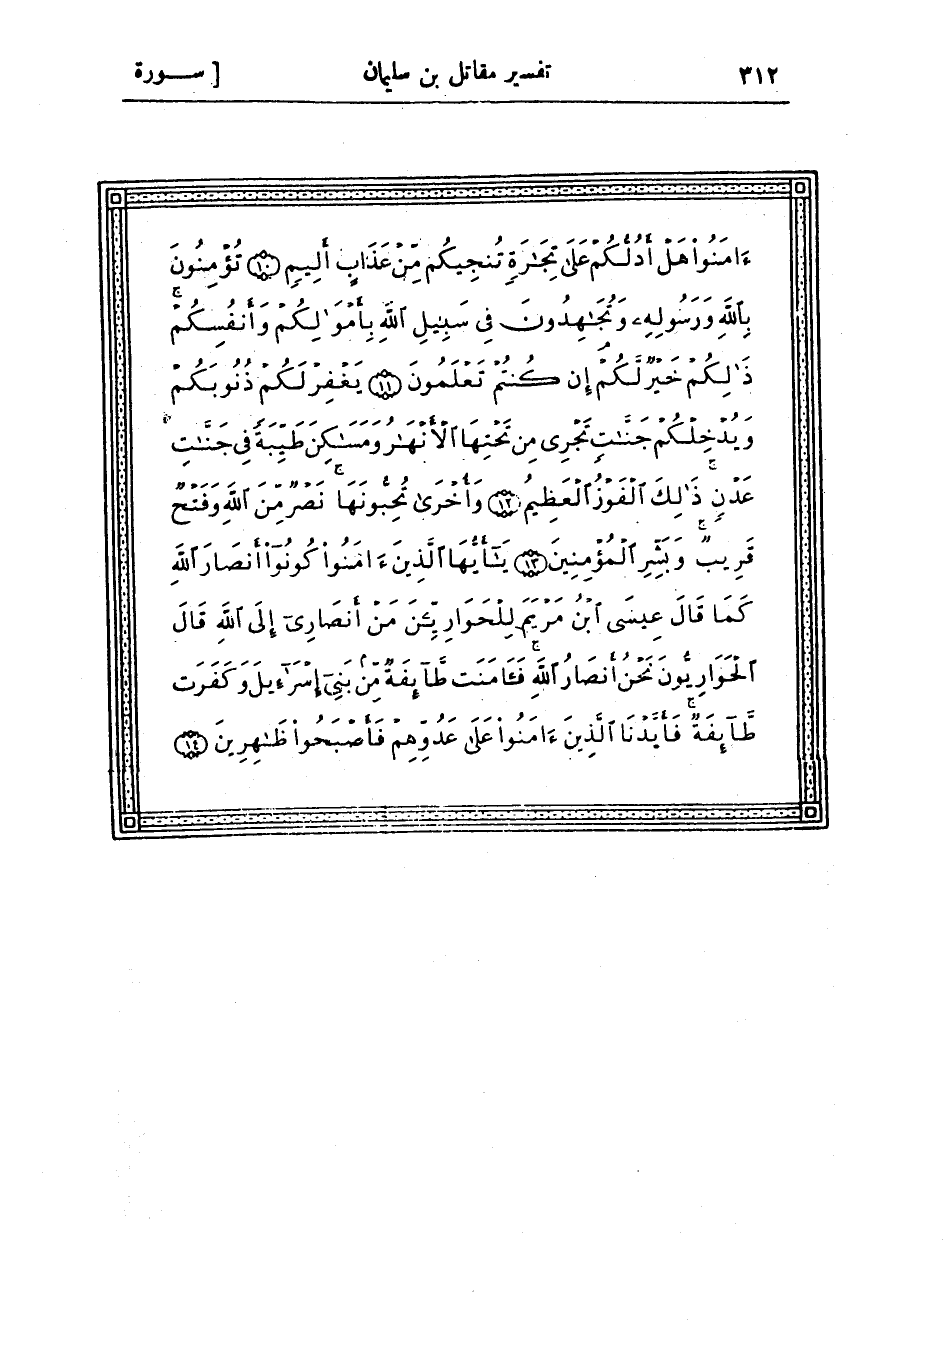 ٣١٢ تفسير مقاتل بن سليمان [ سـورة
ءَامَنُواْ هَلْ أَدُلُّكُمْ عَلَىٰ تِجَٰرَةٍ تُنجِيكُم مِّنْ عَذَابٍ أَلِيمٍ ١٠ تُؤْمِنُونَ
بِٱللَّهِ وَرَسُولِهِۦ وَتُجَٰهِدُونَ فِى سَبِيلِ ٱللَّهِ بِأَمْوَٰلِكُمْ وَأَنفُسِكُمْۚ
ذَٰلِكُمْ خَيْرٌ لَّكُمْ إِن كُنتُمْ تَعْلَمُونَ ١١ يَغْفِرْ لَكُمْ ذُنُوبَكُمْ
وَيُدْخِلْكُمْ جَنَّٰتٍ تَجْرِى مِن تَحْتِهَا ٱلْأَنْهَٰرُ وَمَسَٰكِنَ طَيِّبَةً فِى جَنَّٰتِ
عَدْنٍۚ ذَٰلِكَ ٱلْفَوْزُ ٱلْعَظِيمُ ١٢ وَأُخْرَىٰ تُحِبُّونَهَاۖ نَصْرٌ مِّنَ ٱللَّهِ وَفَتْحٌ
قَرِيبٌۗ وَبَشِّرِ ٱلْمُؤْمِنِينَ ١٣ يَٰٓأَيُّهَا ٱلَّذِينَ ءَامَنُواْ كُونُوٓاْ أَنصَارَ ٱللَّهِ
كَمَا قَالَ عِيسَى ٱبْنُ مَرْيَمَ لِلْحَوَارِيِّـۧنَ مَنْ أَنصَارِىٓ إِلَى ٱللَّهِۖ قَالَ
ٱلْحَوَارِيُّونَ نَحْنُ أَنصَارُ ٱللَّهِۖ فَـَٔامَنَت طَّآئِفَةٌ مِّنۢ بَنِىٓ إِسْرَٰٓءِيلَ وَكَفَرَت
طَّآئِفَةٌۖ فَأَيَّدْنَا ٱلَّذِينَ ءَامَنُواْ عَلَىٰ عَدُوِّهِمْ فَأَصْبَحُواْ ظَٰهِرِينَ ١٤